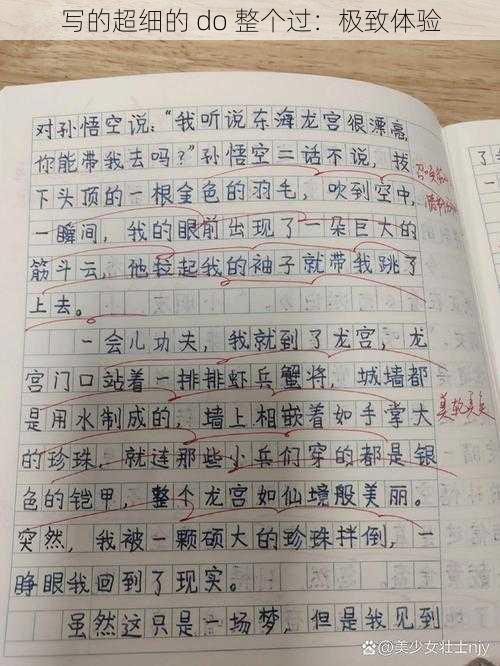 写的超细的 do 整个过：极致体验
对孙悟空说："我听说东海龙宫很漂亮，
你能带我去吗？"孙悟空二话不说，拔
下头顶的一根金色的羽毛，吹到空中，
一瞬间，我的眼前出现了一朵巨大的
筋斗云，他轻起我的袖子就带我跳了
上去。
一会儿功夫，我就到了龙宫，龙
宫门口站着一排排虾兵蟹将，城墙都
是用水制成的，墙上相嵌着如手掌大
的珍珠，就连那些小兵们穿的都是银
色的铠甲，整个龙宫如仙境般美丽。
突然，我被一颗硕大的珍珠拌倒，一
睁眼我回到了现实。
虽然这只是一场梦，但是我见到
百家号/美少女壮士njy